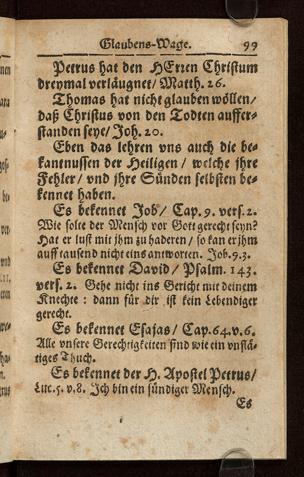 Glaubens-Wage. 99
Petrus hat den HErren Christum
dreymal verläugnet / Matth. 26.
Thomas hat nicht glauben wöllen /
daß Christus von den Todten auffer-
standen seye / Joh. 20.
Eben das lehren vns auch die be-
kantnussen der Heiligen / welche jhre
Fehler / vnd jhre Sünden selbsten be-
kennet haben.
Es bekennet Job / Cap. 9. vers. 2.
Wie solte der Mensch vor Gott gerecht seyn?
Hat er lust mit jhm zu haderen / so kan er jhm
auff tausend nicht eins antworten. Job. 9.3.
Es bekennet David / Psalm. 143.
vers. 2. Gehe nicht ins Gericht mit deinem
Knechte : dann für dir ist kein Lebendiger
gerecht.
Es bekennet Esajas / Cap. 64. v. 6.
Alle vnsere Gerechtigkeiten sind wie ein vnflä-
tiges Thuch.
Es bekennet der H. Apostel Petrus /
Luc. 5. v. 8. Ich bin ein sündiger Mensch.
Es